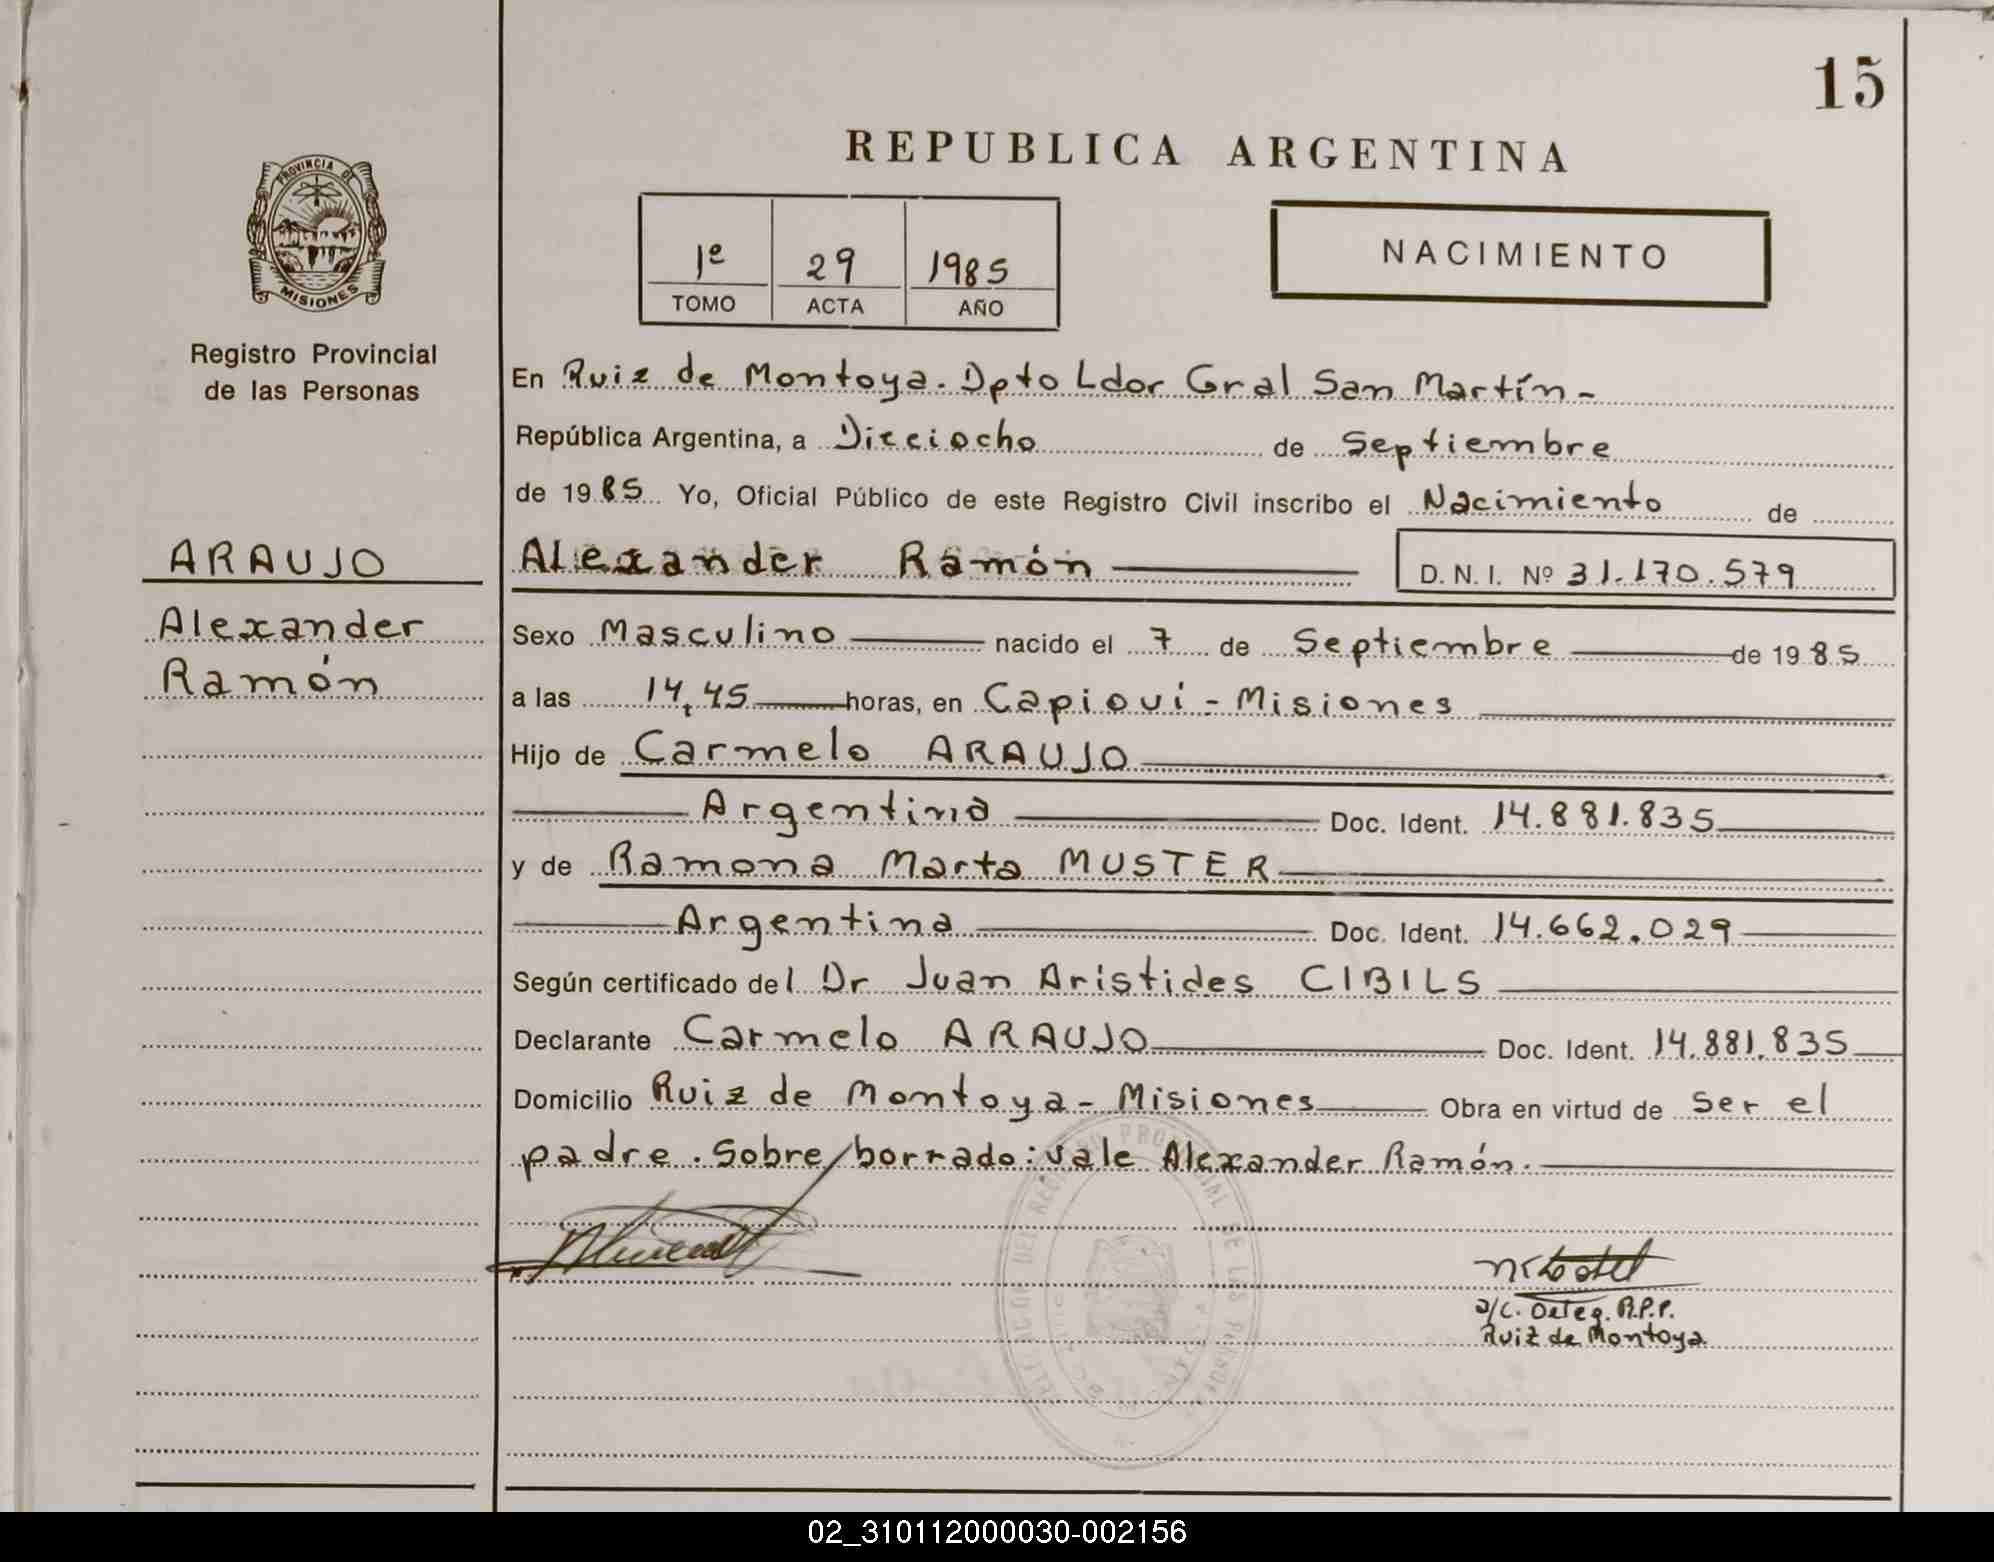 15
REPUBLICA ARGENTINA
PROVINCIA DE
MISIONES
Registro Provincial
de las Personas
1º 29 1985
TOMO ACTA AÑO
NACIMIENTO
En Ruiz de Montoya. Dpto Ldor Gral San Martín-
República Argentina, a Dieciocho de Septiembre
de 1985 Yo, Oficial Público de este Registro Civil inscribo el Nacimiento de
ARAUJO
Alexander
Ramón
Alexander Ramón D.N.I. Nº 31.170.579
Sexo Masculino nacido el 7 de Septiembre de 1985
a las 14,45 horas, en Capioví - Misiones
Hijo de Carmelo ARAUJO
Argentina Doc. Ident. 14.881.835
y de Ramona Marta MUSTER
Argentina Doc. Ident. 14.662.029
Según certificado del Dr Juan Arístides CIBILS
Declarante Carmelo ARAUJO Doc. Ident. 14.881.835
Domicilio Ruiz de Montoya - Misiones Obra en virtud de ser el
padre. Sobre borrado: vale Alexander Ramón.
a/c. Deleg. R.P.P.
Ruiz de Montoya
02_310112000030-002156